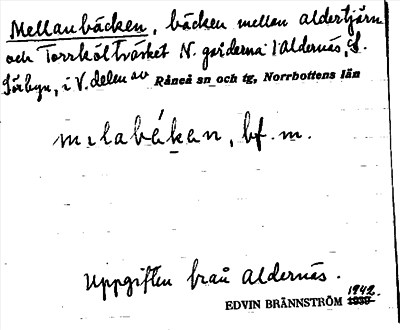 Mellanbäcken, bäcken mellan aldertjärn
och Torrhölträsket N. gårderna i Aldernäs,
Förbyn, i V. delen av Råneå sn och tg, Norrbottens län
mɛlabɛ́kɛn, bf. m.
Uppgiften från aldernäs.
EDVIN BRÄNNSTRÖM 1942.